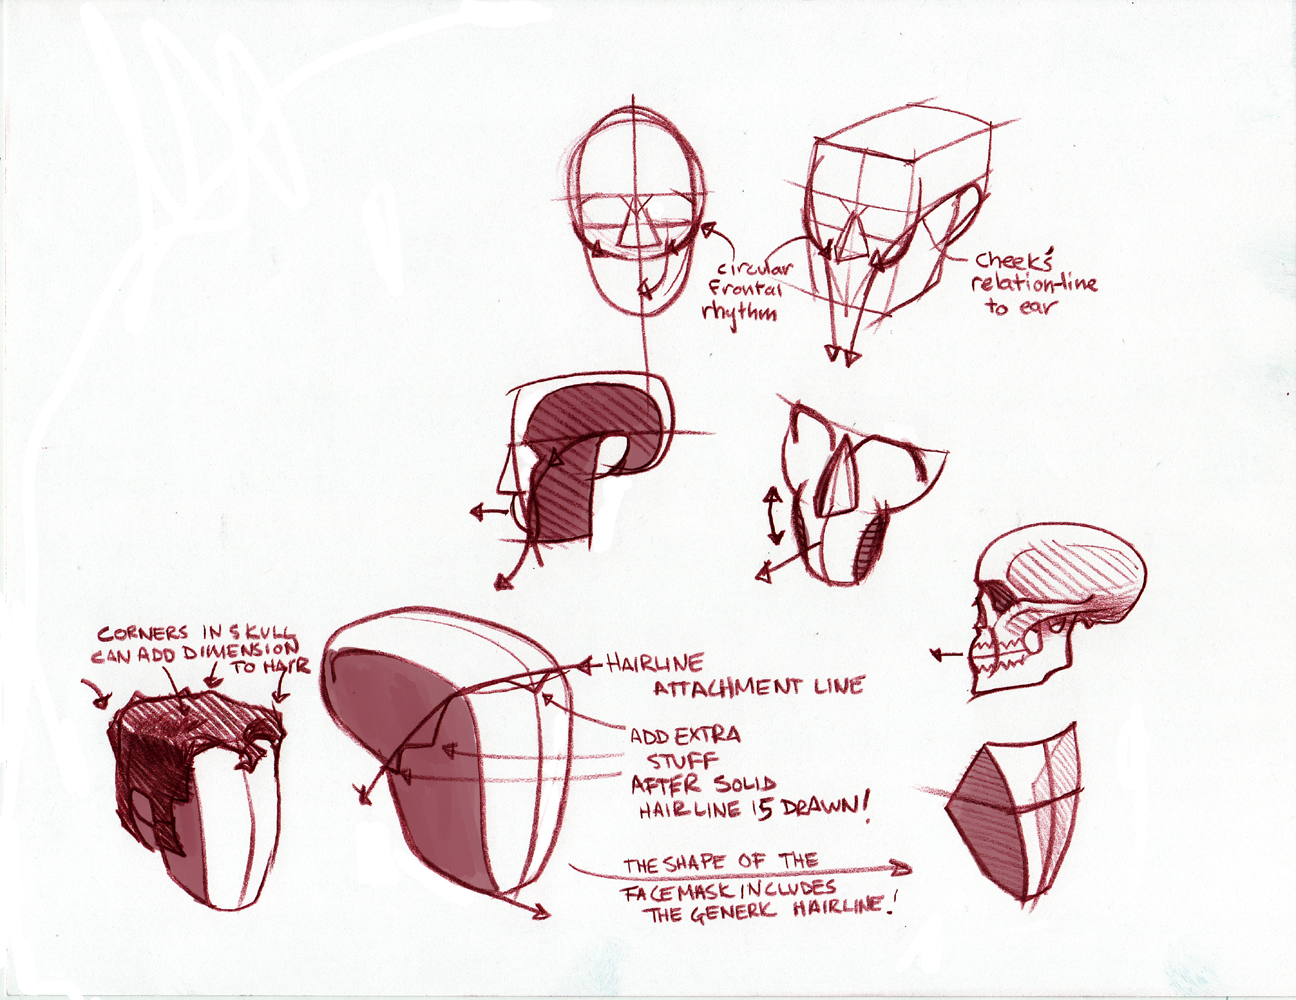 circular
frontal
rhythm
Cheek's
relation-line
to ear
CORNERS IN SKULL
CAN ADD DIMENSION
TO HAIR
HAIRLINE
ATTACHMENT LINE
ADD EXTRA
STUFF
AFTER SOLID
HAIRLINE IS DRAWN!
THE SHAPE OF THE
FACEMASK INCLUDES
THE GENERIC HAIRLINE!